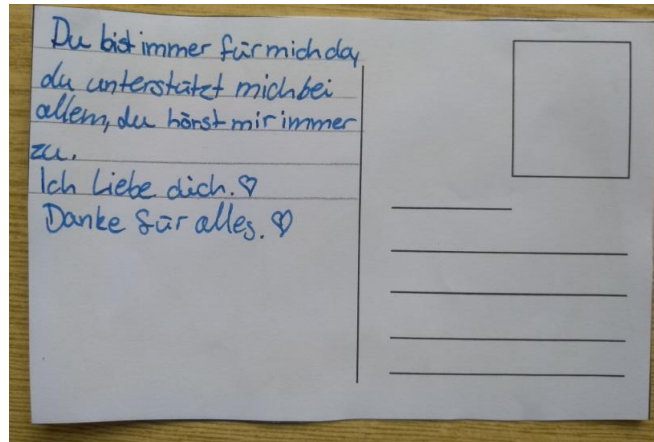 Du bist immer für mich da,
du unterstützt mich bei
allem, du hörst mir immer
zu.
Ich Liebe dich. ♡
Danke für alles. ♡